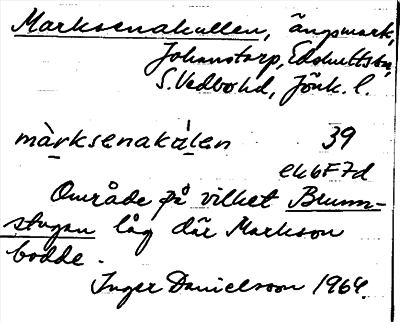 Marksenakullen, ängsmark,
Johanstorp, Edshults sn,
S. Vedbo hd, Jönk. l.
màrksenaku̇len 39
ek6F7d
Område på vilket Brunn-
stugan låg där Markson
bodde.
Inger Danielsson 1964.